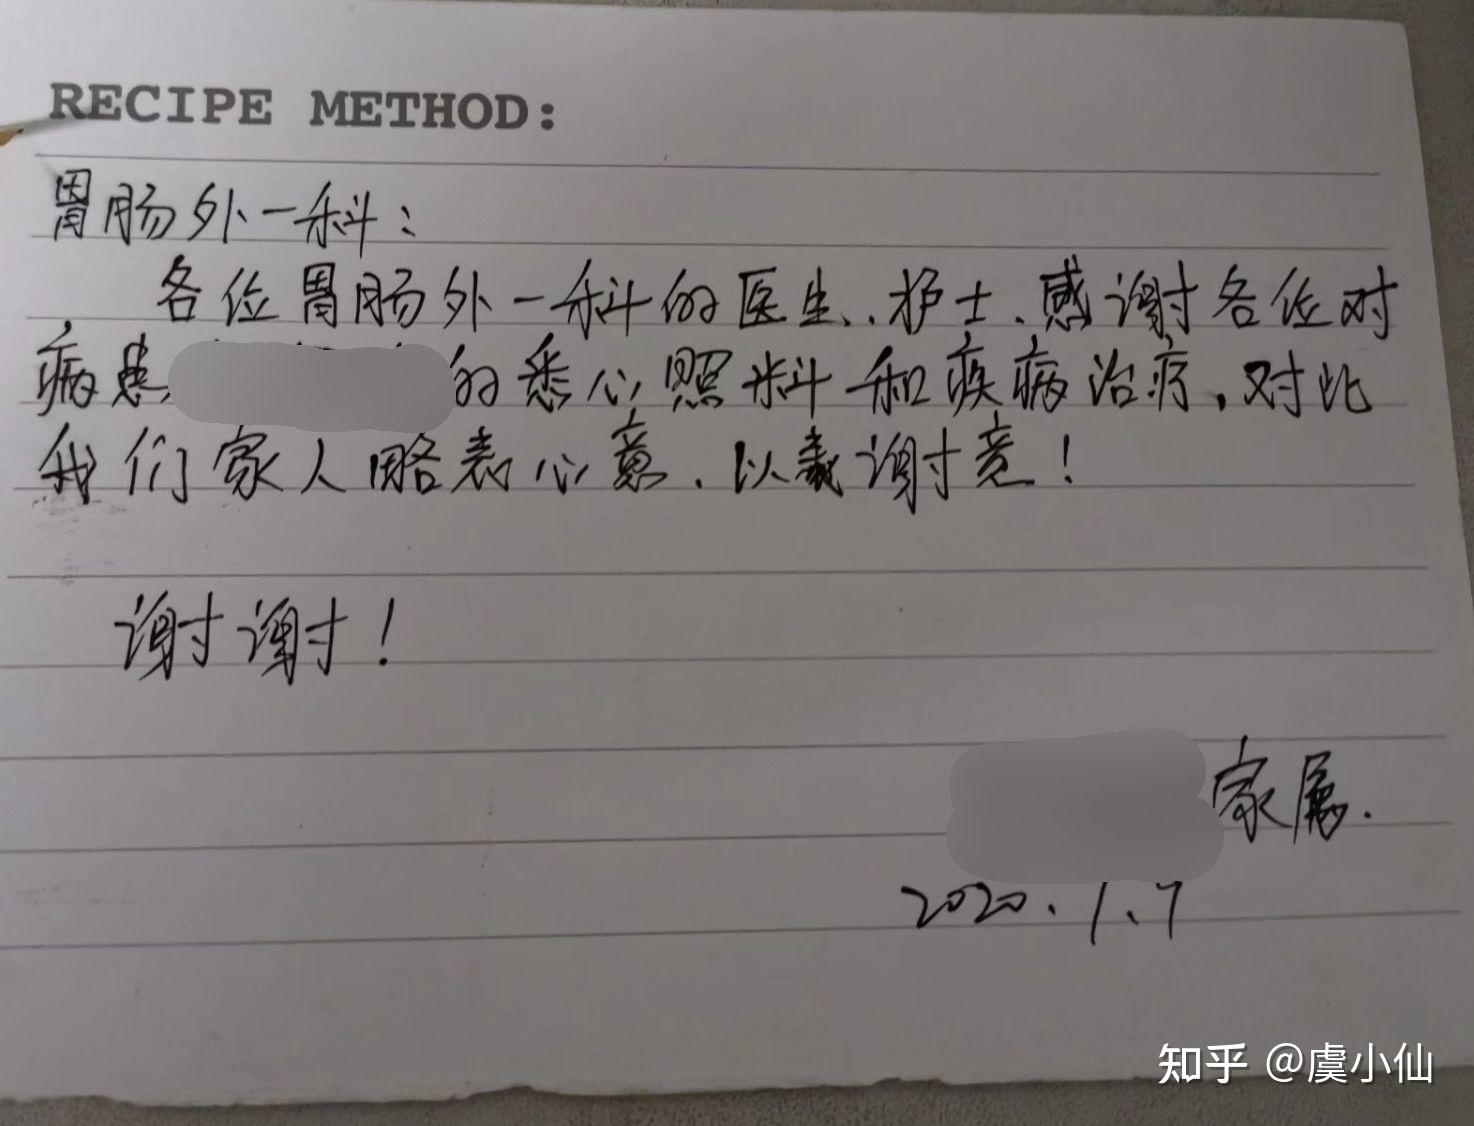 RECIPE METHOD:
胃肠外一科：
各位胃肠外一科的医生、护士、感谢各位对
病患的悉心照料和疾病治疗，对此
我们家人略表心意，以表谢意！
谢谢！
家属.
2020.1.9
知乎 @虞小仙